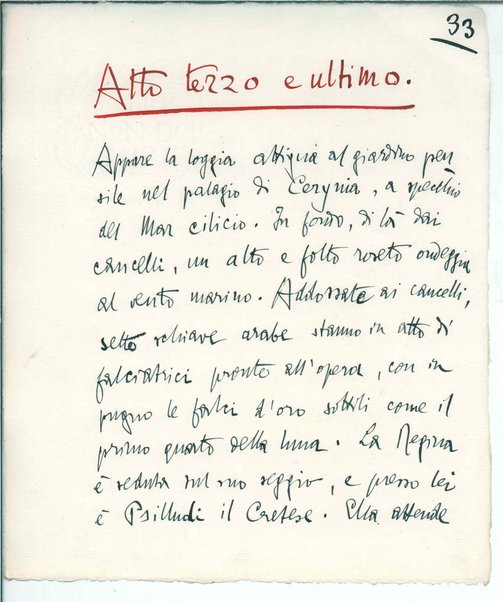 33
Atto terzo e ultimo.
Appare la loggia attigua al giardino pen
sile nel palagio di Cerynia, a specchio
del Mar cilicio. In fondo, di là dai
cancelli, un alto e folto roseto ondeggia
al vento marino. Addossate ai cancelli,
sette schiave arabe stanno in atto di
falciatrici pronte all'opera, con in
pugno le falci d'oro sottili come il
primo quarto della luna. La Regina
è seduta sul suo seggio, e presso lei
è Psilludi il Cretese. Ella attende